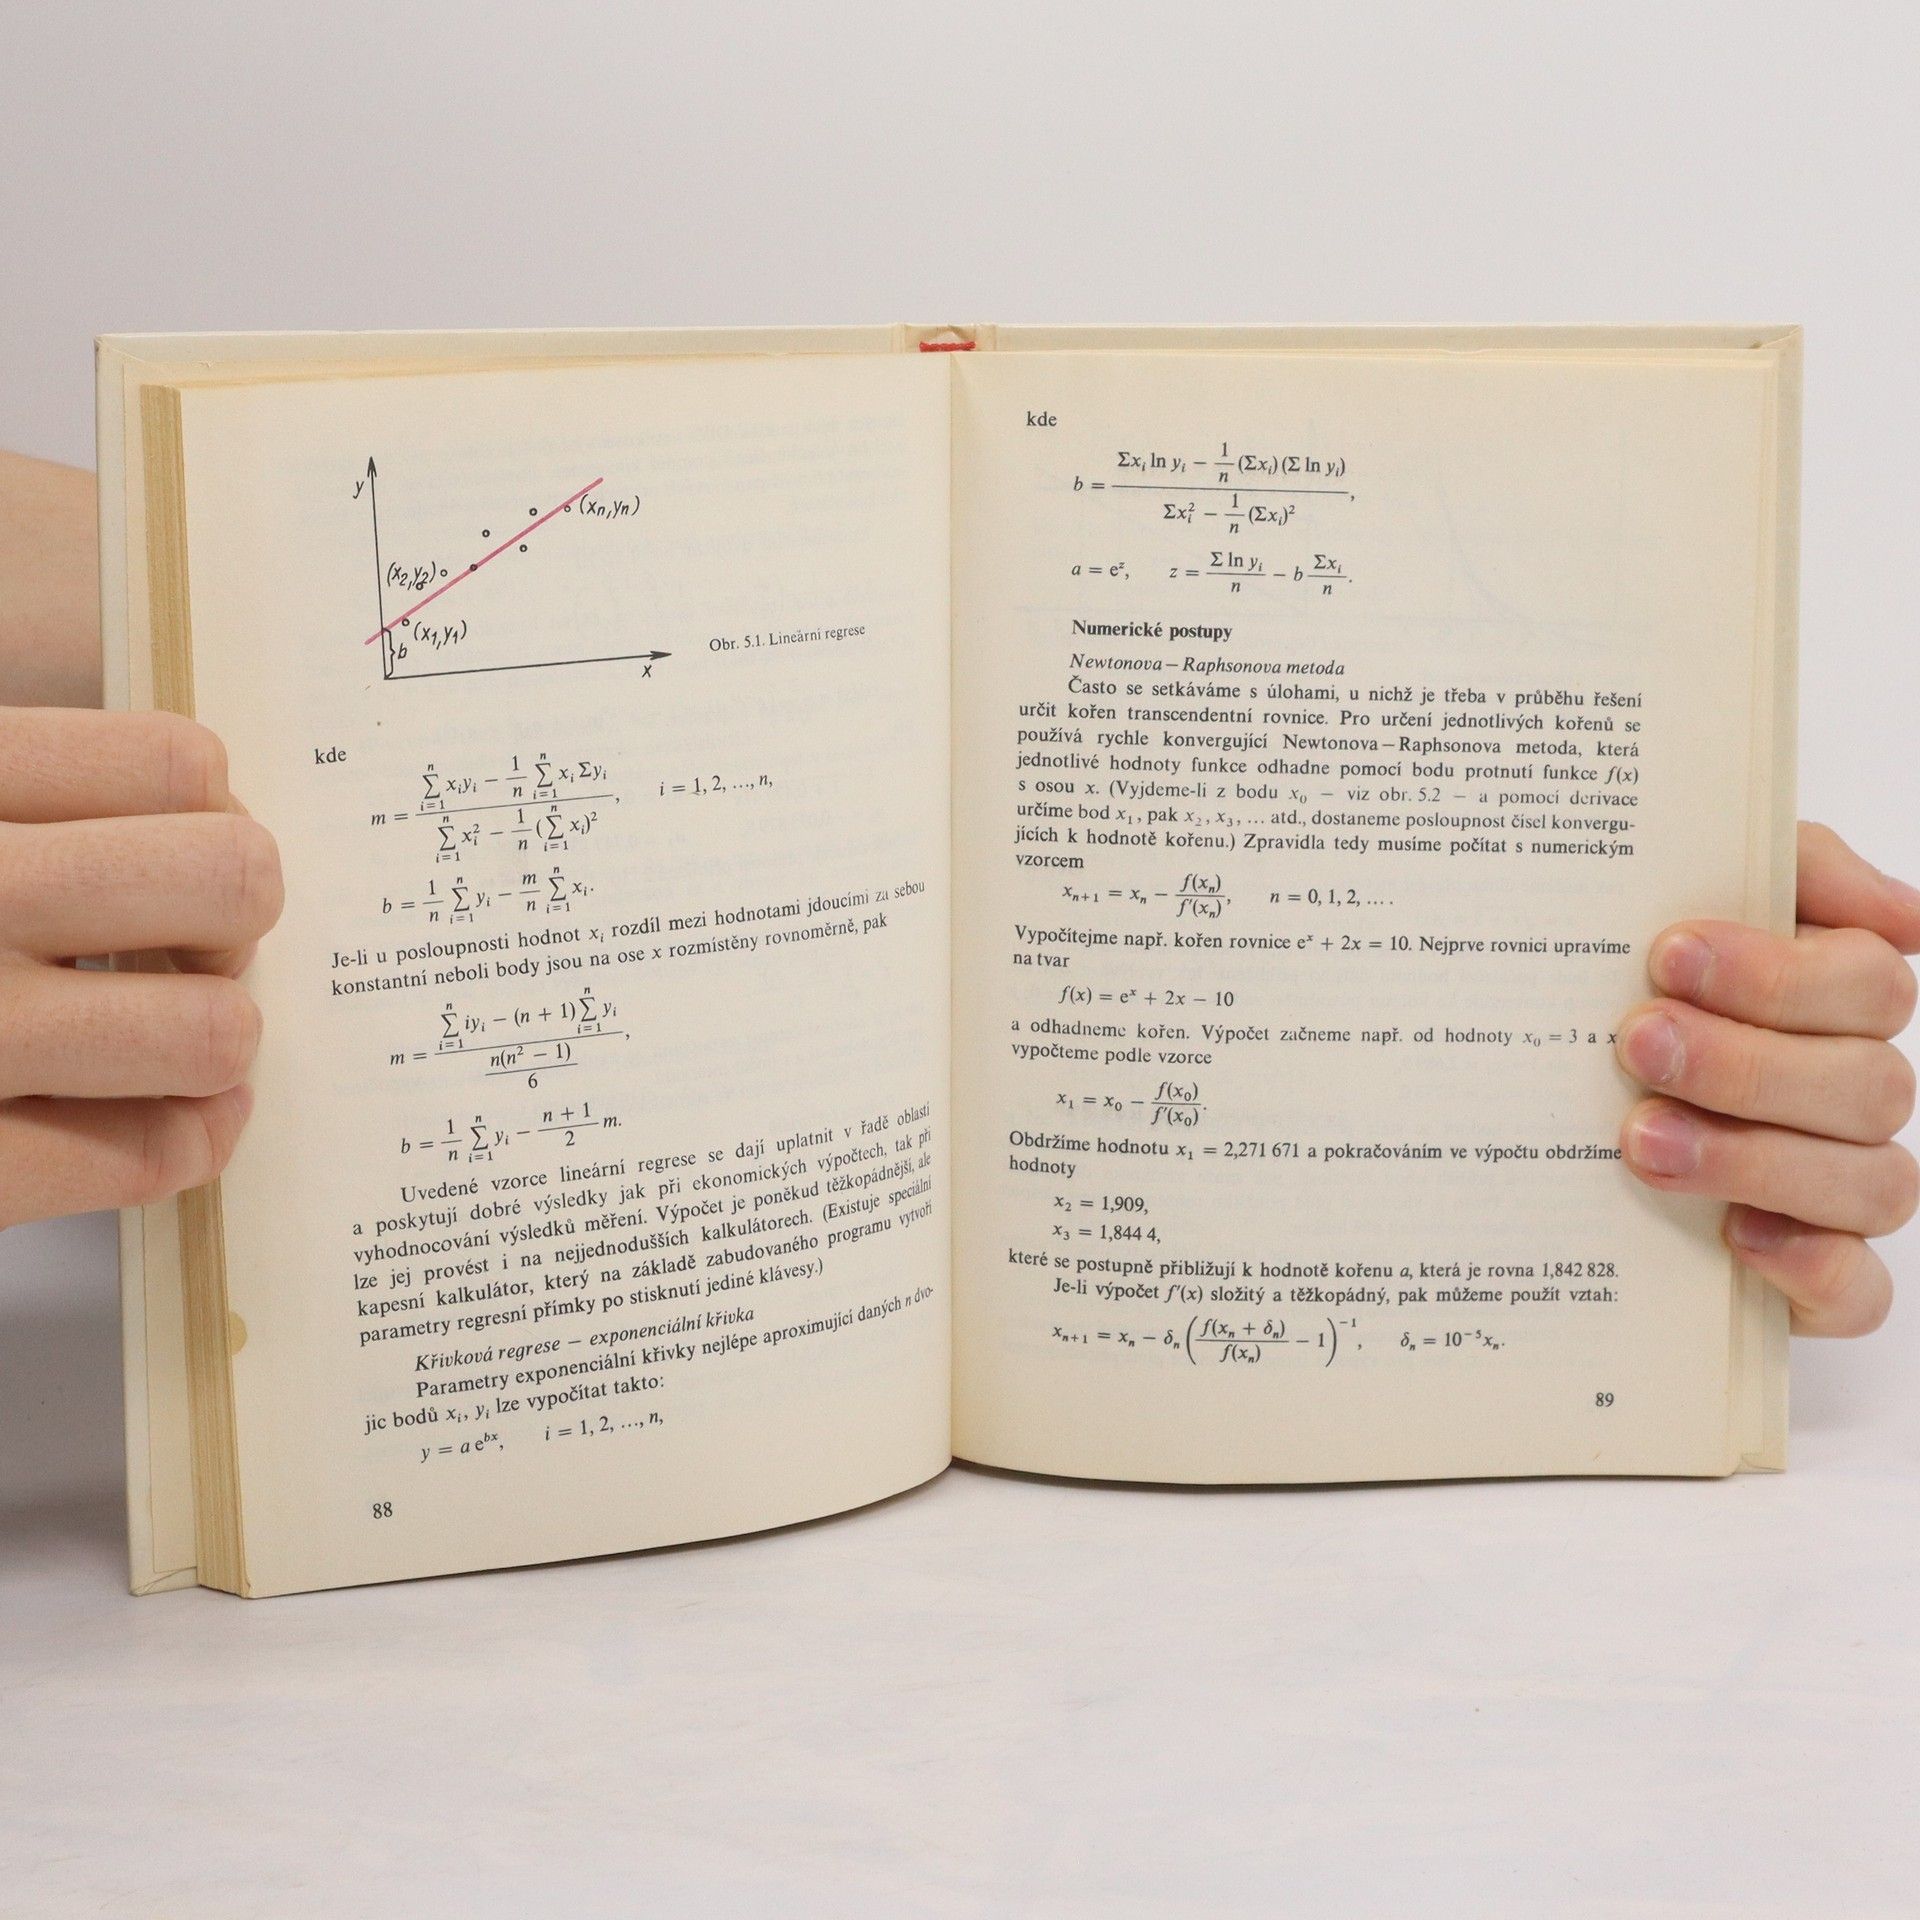 y
(xn,yn)
(x2,y2)
(x1,y1)
b
x
Obr. 5.1. Lineární regrese
kde
m = (∑_{i=1}^{n} x_i y_i − 1/n ∑_{i=1}^{n} x_i Σy_i) / (∑_{i=1}^{n} x_i² − 1/n (∑_{i=1}^{n} x_i)²), i = 1, 2, ..., n,
b = 1/n ∑_{i=1}^{n} y_i − m/n ∑_{i=1}^{n} x_i.
Je-li u posloupnosti hodnot x_i rozdíl mezi hodnotami jdoucími za sebou
konstantní neboli body jsou na ose x rozmístěny rovnoměrně, pak
m = (∑_{i=1}^{n} iy_i − (n + 1) ∑_{i=1}^{n} y_i) / (n(n² − 1)/6),
b = 1/n ∑_{i=1}^{n} y_i − (n + 1)/2 m.
Uvedené vzorce lineární regrese se dají uplatnit v řadě oblastí
a poskytují dobré výsledky jak při ekonomických výpočtech, tak při
vyhodnocování výsledků měření. Výpočet je poněkud těžkopádnější, ale
lze jej provést i na nejjednodušších kalkulátorech. (Existuje speciální
kapesní kalkulátor, který na základě zabudovaného programu vytvoří
parametry regresní přímky po stisknutí jediné klávesy.)
Křivková regrese – exponenciální křivka
Parametry exponenciální křivky nejlépe aproximující daných n dvo-
jic bodů x_i, y_i lze vypočítat takto:
y = a e^{bx}, i = 1, 2, ..., n,
88
kde
b = (Σx_i ln y_i − 1/n (Σx_i)(Σ ln y_i)) / (Σx_i² − 1/n (Σx_i)²),
a = e^z, z = Σ ln y_i / n − b Σx_i / n.
Numerické postupy
Newtonova – Raphsonova metoda
Často se setkáváme s úlohami, u nichž je třeba v průběhu řešení
určit kořen transcendentní rovnice. Pro určení jednotlivých kořenů se
používá rychle konvergující Newtonova – Raphsonova metoda, která
jednotlivé hodnoty funkce odhadne pomocí bodu protnutí funkce f(x)
s osou x. (Vyjdeme-li z bodu x_0 – viz obr. 5.2 – a pomocí derivace
určíme bod x_1, pak x_2, x_3, ... atd., dostaneme posloupnost čísel konvergu-
jících k hodnotě kořenu.) Zpravidla tedy musíme počítat s numerickým
vzorcem
x_{n+1} = x_n − f(x_n)/f′(x_n), n = 0, 1, 2, ....
Vypočítejme např. kořen rovnice e^x + 2x = 10. Nejprve rovnici upravíme
na tvar
f(x) = e^x + 2x − 10
a odhadneme kořen. Výpočet začneme např. od hodnoty x_0 = 3 a x
vypočteme podle vzorce
x_1 = x_0 − f(x_0)/f′(x_0).
Obdržíme hodnotu x_1 = 2,271 671 a pokračováním ve výpočtu obdržíme
hodnoty
x_2 = 1,909,
x_3 = 1,844 4,
které se postupně přibližují k hodnotě kořenu a, která je rovna 1,842 828.
Je-li výpočet f′(x) složitý a těžkopádný, pak můžeme použít vztah:
x_{n+1} = x_n − δ_n (f(x_n + δ_n)/f(x_n) − 1)^{−1}, δ_n = 10^{−5}x_n.
89